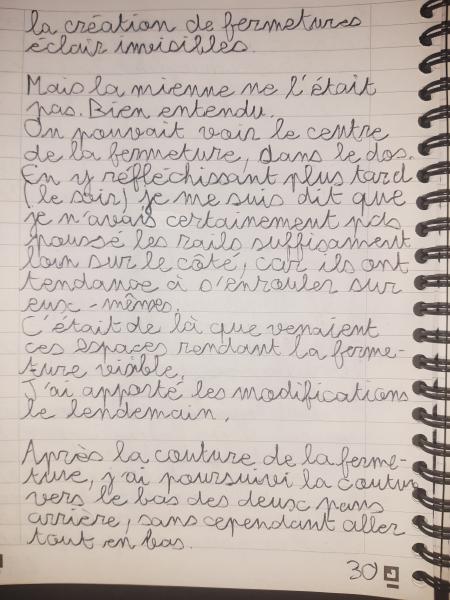 la création de fermetures
éclair invisibles.
Mais la mienne ne l'était
pas. Bien entendu.
On pouvait voir le centre
de la fermeture, dans le dos.
En y réfléchissant plus tard
(le soir) je me suis dit que
je n'avais certainement pas
poussé les rails suffisament
loin sur le côté, car ils ont
tendance à s'enrouler sur
eux-mêmes.
C'était de là que venaient
ces espaces rendant la ferme-
ture visible.
J'ai apporté les modifications
le lendemain.
Après la couture de la ferme-
ture, j'ai poursuivi la couture
vers le bas des deux pans
arrière, sans cependant aller
tout en bas.
30